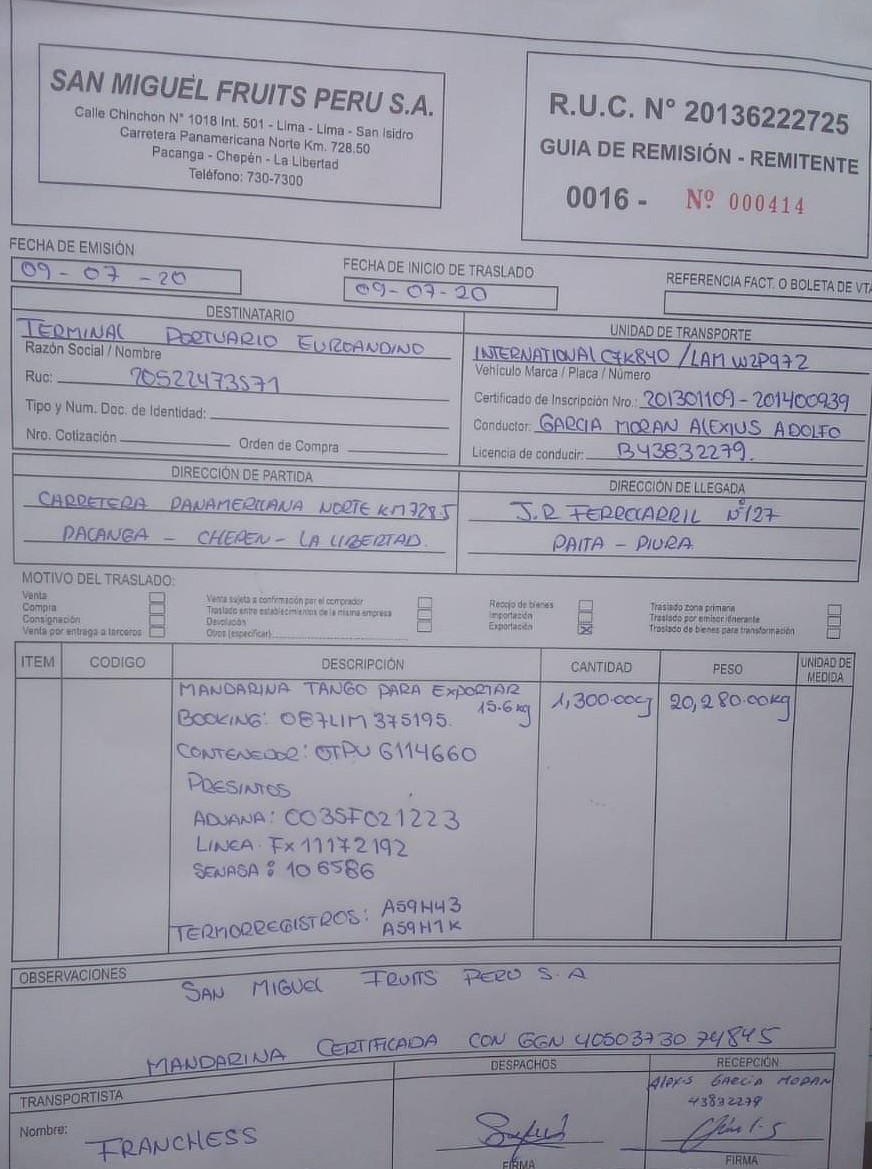 SAN MIGUEL FRUITS PERU S.A.
Calle Chinchon N° 1018 Int. 501 - Lima - Lima - San Isidro
Carretera Panamericana Norte Km. 728.50
Pacanga - Chepén - La Libertad
Teléfono: 730-7300
R.U.C. N° 20136222725
GUIA DE REMISIÓN - REMITENTE
0016 - Nº 000414
FECHA DE EMISIÓN
09-07-20
FECHA DE INICIO DE TRASLADO
09-07-20
REFERENCIA FACT. O BOLETA DE VTA
DESTINATARIO
TERMINAL PORTUARIO EUROANDINO
Razón Social / Nombre
Ruc: 20522473571
Tipo y Num. Doc. de Identidad:
Nro. Cotización Orden de Compra
UNIDAD DE TRANSPORTE
INTERNATIONAL C7K840 / LAM W2P972
Vehículo Marca / Placa / Número
Certificado de Inscripción Nro.: 201301109 - 201400939
Conductor: GARCIA MORAN ALEXIUS ADOLFO
Licencia de conducir: B43832279.
DIRECCIÓN DE PARTIDA
CARRETERA PANAMERICANA NORTE KM 728.5
PACANGA - CHEPEN - LA LIBERTAD.
DIRECCIÓN DE LLEGADA
J.R FERROCARRIL Nº127
PAITA - PIURA
MOTIVO DEL TRASLADO:
Venta
Compra
Consignación
Venta por entrega a terceros
Venta sujeta a confirmación por el comprador
Traslado entre establecimientos de la misma empresa
Devolución
Otros (especificar)
Recojo de bienes
Importación
Exportación X
Traslado zona primaria
Traslado por emisor itinerante
Traslado de bienes para transformación
ITEM CODIGO DESCRIPCIÓN CANTIDAD PESO UNIDAD DE MEDIDA
MANDARINA TANGO PARA EXPORTAR 1,300.00cj 20,280.00kg
15.6 kg
BOOKING: 087LIM375195.
CONTENEDOR: OTPU 6114660
PRESINTOS
ADUANA: CO35F021223
LINEA. Fx11172192
SENASA: 106586
TERMORREGISTROS: A59H43
A59H1K
OBSERVACIONES
SAN MIGUEL FRUITS PERU S.A
MANDARINA CERTIFICADA CON GGN 4050373074845
TRANSPORTISTA
Nombre:
FRANCHESS
DESPACHOS
FIRMA
RECEPCIÓN
Alexis Garcia Moran
43832279
FIRMA